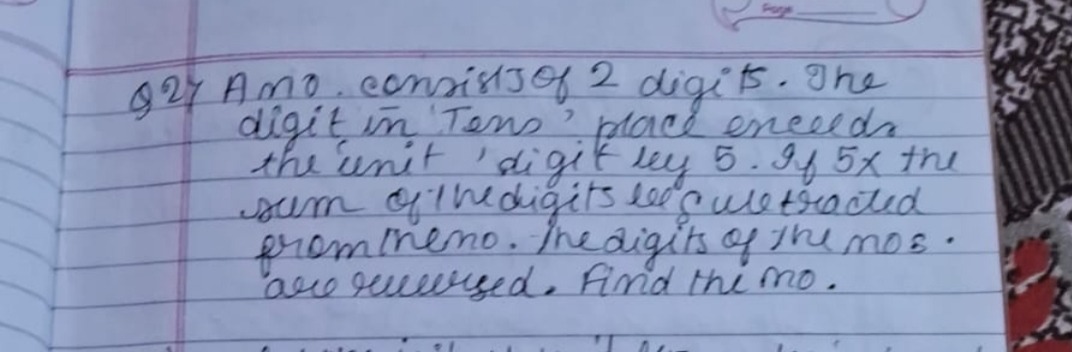 Page
Q2) A no. consists of 2 digits. The
digit in 'Tens' place exceeds
the 'unit' digit by 5. If 5x the
sum of the digits be subtracted
from the no. The digits of the nos.
are reversed. Find the no.